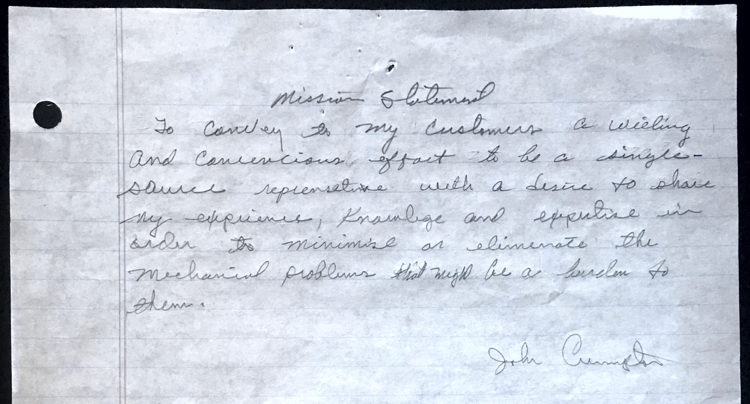 Mission Statement
To convey to my customers a willing
and conciencious effort to be a single-
source representive with a desire to share
my experience, knowlege and expertise in
order to minimise or elimenate the
mechanical problems that might be a burden to
them.
John Crumpton